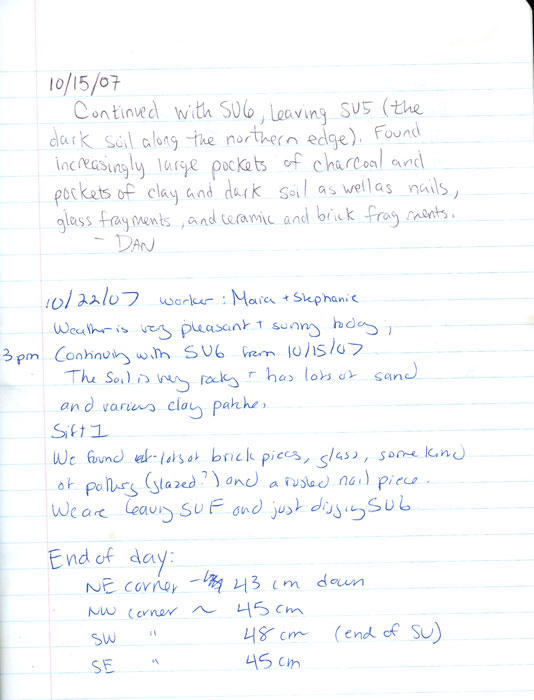 10/15/07
Continued with SU6, leaving SU5 (the
dark soil along the northern edge). Found
increasingly large pockets of charcoal and
pockets of clay and dark soil as well as nails,
glass fragments, and ceramic and brick fragments.
- DAN
10/22/07 worker: Maria + Stephanie
Weather is very pleasant + sunny today,
3pm Continuing with SU6 from 10/15/07
The Soil is very rocky + has lots of sand
and various clay patches
Sift 1
We found lots of brick pieces, glass, some kind
of pottery (glazed?) and a rusted nail piece.
We are leaving SU5 and just digging SU6
End of day:
NE corner - 43 cm down
NW corner ~ 45 cm
SW " 48 cm (end of SU)
SE " 45 cm